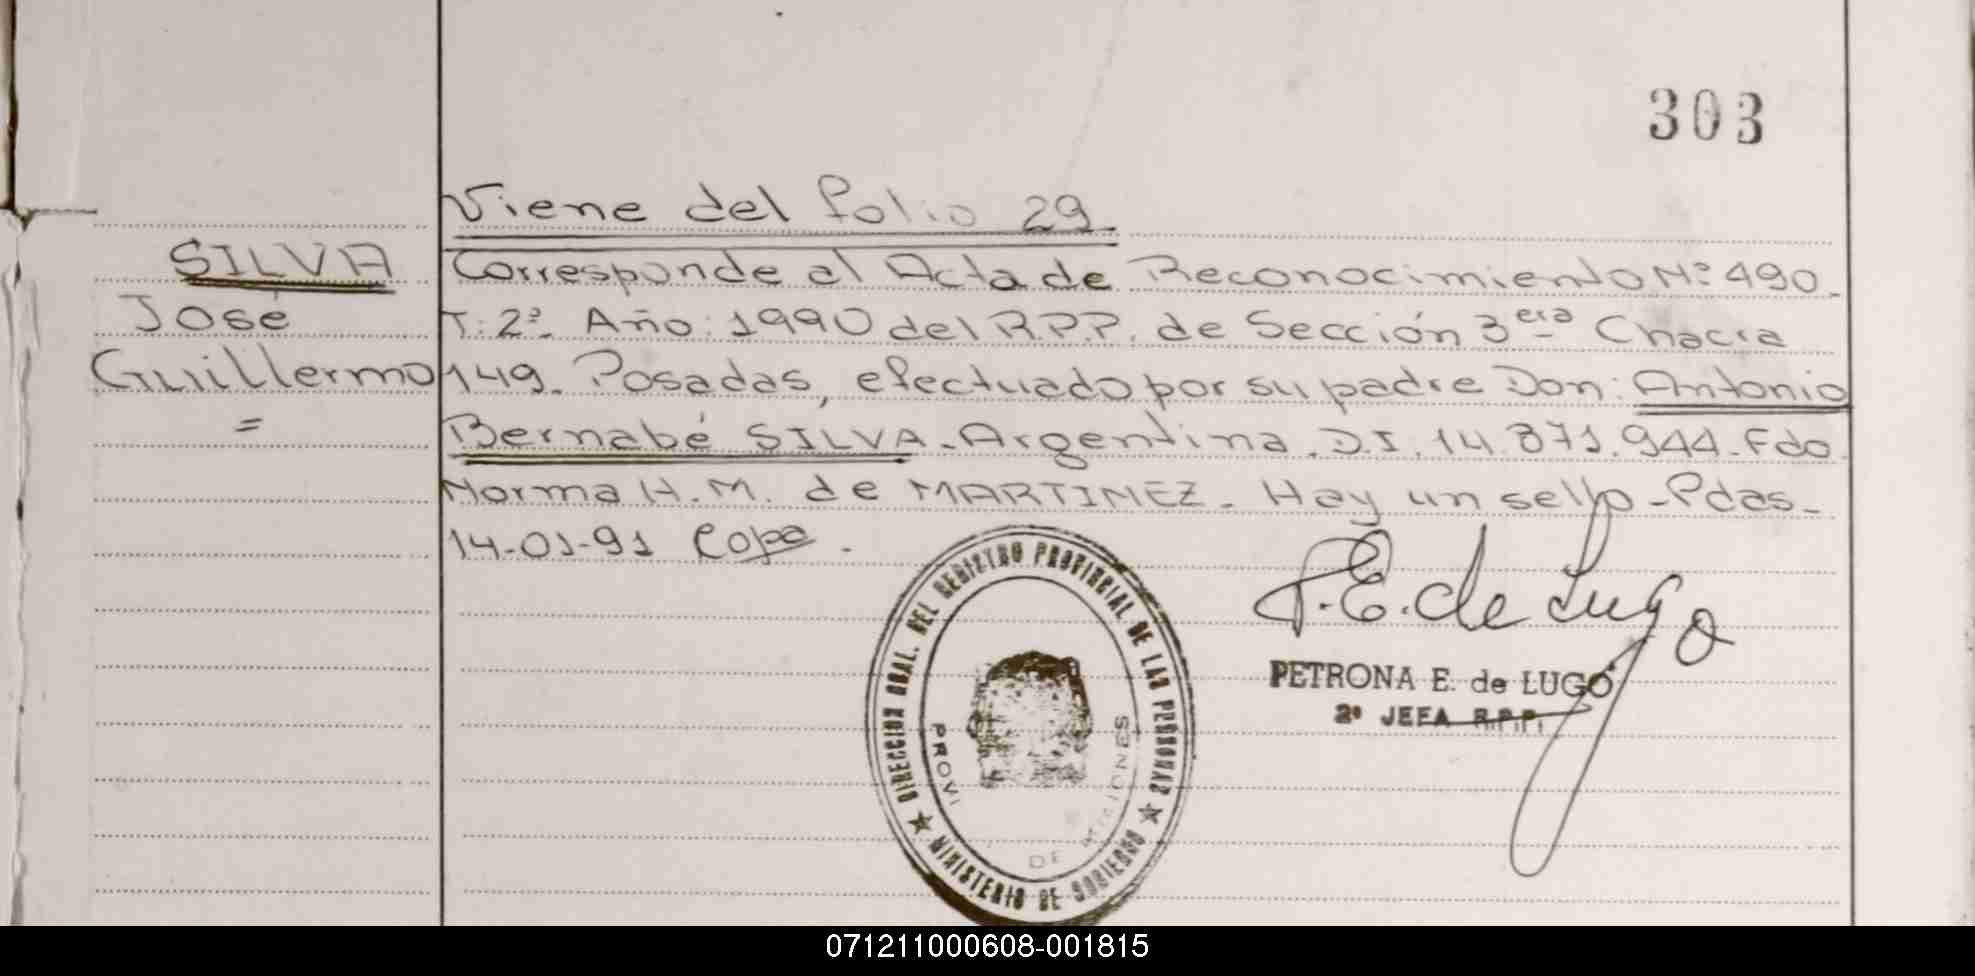 303
Viene del folio 29
SILVA
José
Guillermo
=
Corresponde al Acta de Reconocimiento Nº 490.
T: 2º. Año: 1990 del R.P.P. de Sección 3era Chacra
149. Posadas, efectuado por su padre Don: Antonio
Bernabé SILVA. Argentina. D.I. 14.871.944. Fdo
Norma H.M. de MARTINEZ. Hay un sello - Pdas.
14-01-91
P.E. de Lugo
PETRONA E. de LUGO
2º JEFA R.P.P.
DIRECCION GRAL. DEL REGISTRO PROVINCIAL DE LAS PERSONAS
MINISTERIO DE GOBIERNO
PROVI
DE MISIONES
071211000608-001815